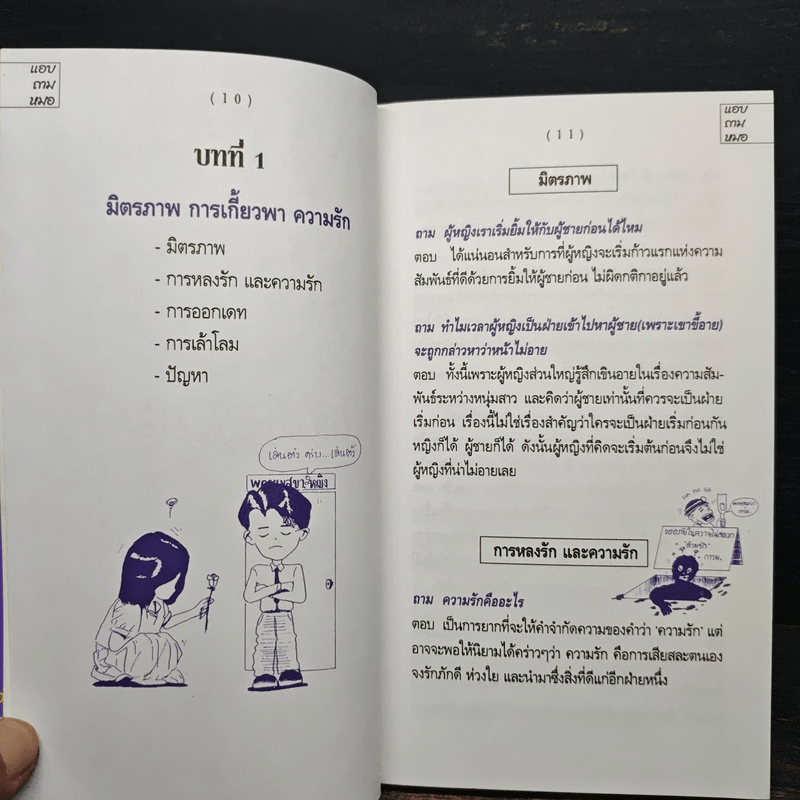 แอบ
ถาม
หมอ
(10)
บทที่ 1
มิตรภาพ การเกี้ยวพา ความรัก
- มิตรภาพ
- การหลงรัก และความรัก
- การออกเดท
- การเล้าโลม
- ปัญหา
เดินตัว ครับ...เดินตัว
แอบ
ถาม
หมอ
(11)
มิตรภาพ
ถาม ผู้หญิงเราเริ่มยิ้มให้กับผู้ชายก่อนได้ไหม
ตอบ ได้แน่นอนสำหรับการที่ผู้หญิงจะเริ่มก้าวแรกแห่งความ
สัมพันธ์ที่ดีด้วยการยิ้มให้ผู้ชายก่อน ไม่ผิดกติกาอยู่แล้ว
ถาม ทำไมเวลาผู้หญิงเป็นฝ่ายเข้าไปหาผู้ชาย(เพราะเขาขี้อาย)
จะถูกกล่าวหาว่าหน้าไม่อาย
ตอบ ทั้งนี้เพราะผู้หญิงส่วนใหญ่รู้สึกเขินอายในเรื่องความสัม-
พันธ์ระหว่างหนุ่มสาว และคิดว่าผู้ชายเท่านั้นที่ควรจะเป็นฝ่าย
เริ่มก่อน เรื่องนี้ไม่ใช่เรื่องสำคัญว่าใครจะเป็นฝ่ายเริ่มก่อนกัน
หญิงก็ได้ ผู้ชายก็ได้ ดังนั้นผู้หญิงที่คิดจะเริ่มต้นก่อนจึงไม่ใช่
ผู้หญิงที่น่าไม่อายเลย
HA HA HA
การหลงรัก และความรัก
ถาม ความรักคืออะไร
ตอบ เป็นการยากที่จะให้คำจำกัดความของคำว่า 'ความรัก' แต่
อาจจะพอให้นิยามได้คร่าวๆว่า ความรัก คือการเสียสละตนเอง
จงรักภักดี ห่วงใย และนำมาซึ่งสิ่งที่ดีแก่อีกฝ่ายหนึ่ง